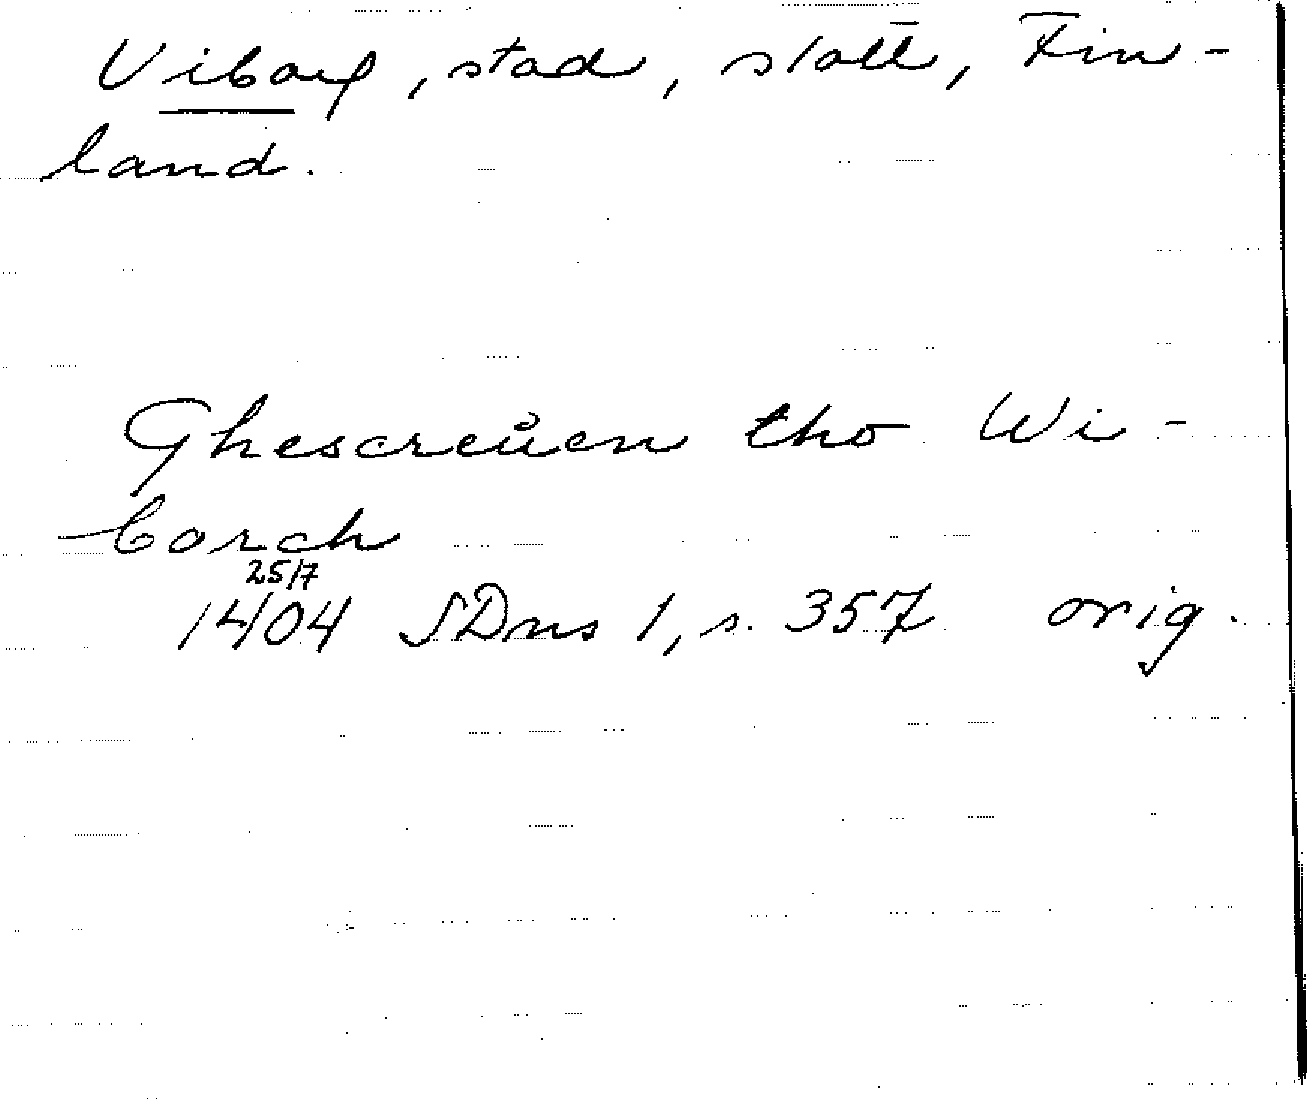 Viborg, stad, slott, Fin-
land.
Ghescreuen tho Wi-
borch
25/7
1404 SDns 1, s. 357 orig.